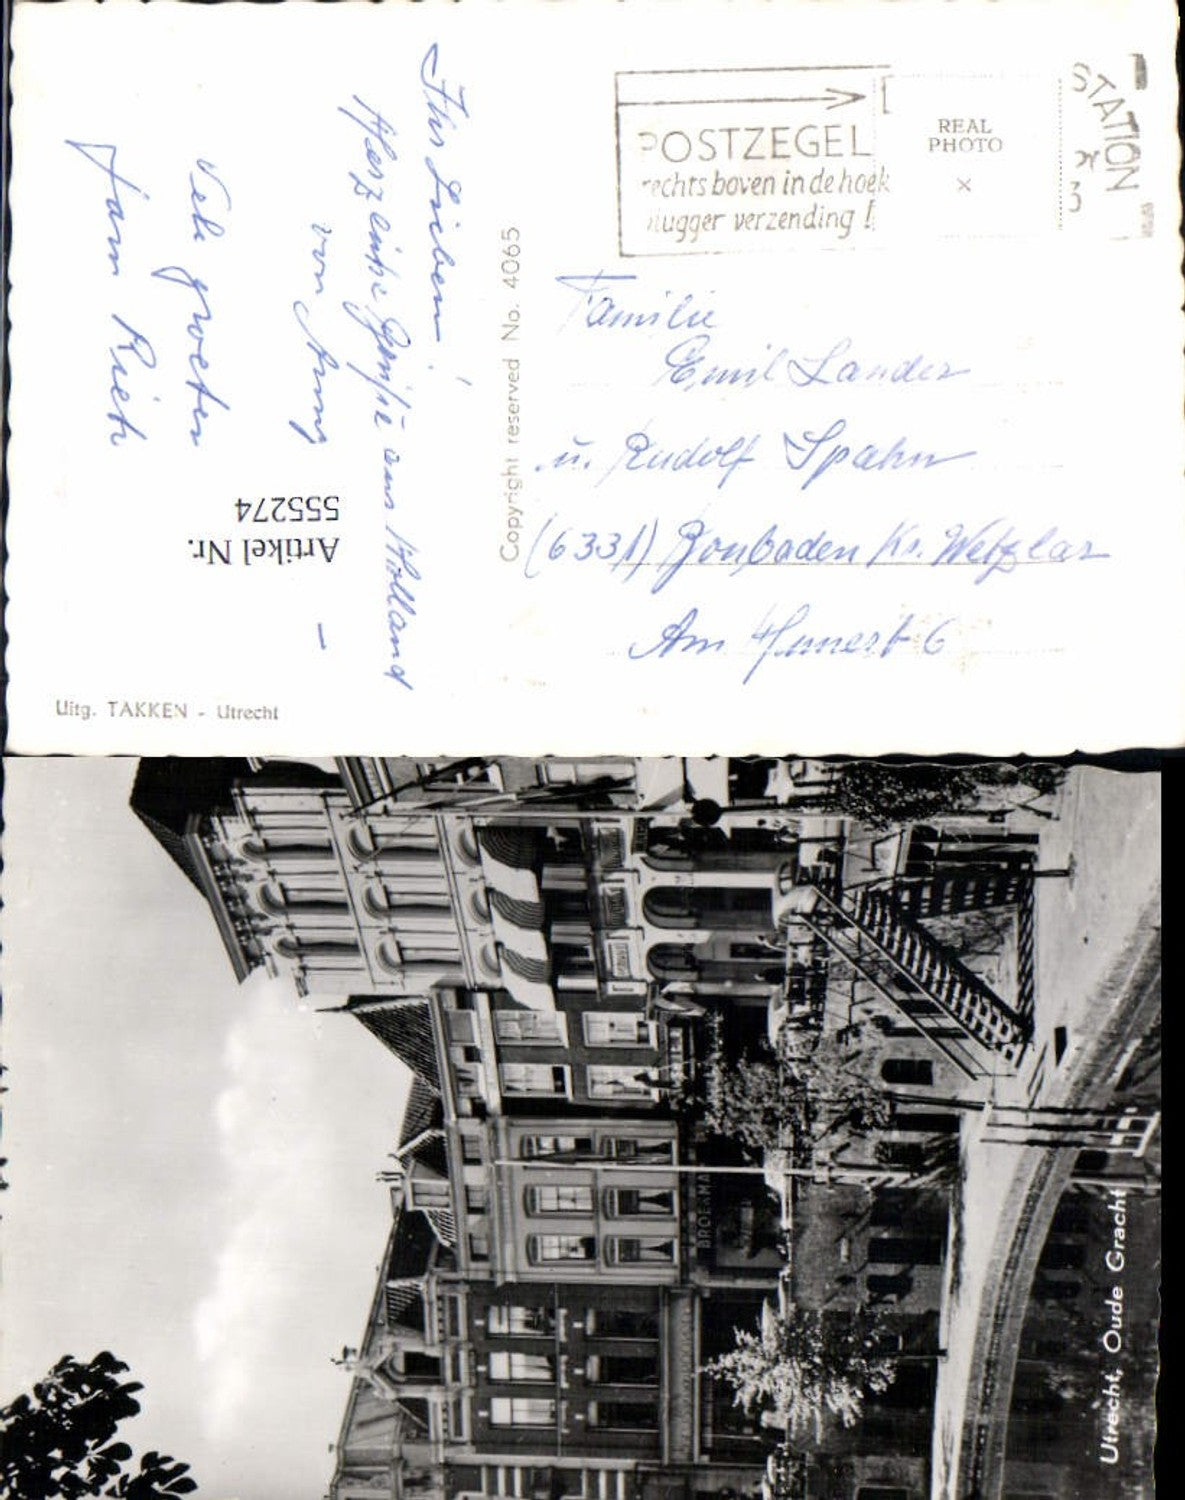 Ihr Lieben!
Herzliche Grüße aus Holland
von Anny
Vele groeten
Jan Riet
Artikel Nr.
555274
Uitg. TAKKEN - Utrecht
Copyright reserved No. 4065
POSTZEGEL
rechts boven in de hoek
vlugger verzending !
REAL
PHOTO
×
STATION
Familie
Emil Lander
u. Rudolf Spahn
(6331) Bonbaden Kr. Wetzlar
Am
6
Utrecht, Oude Gracht